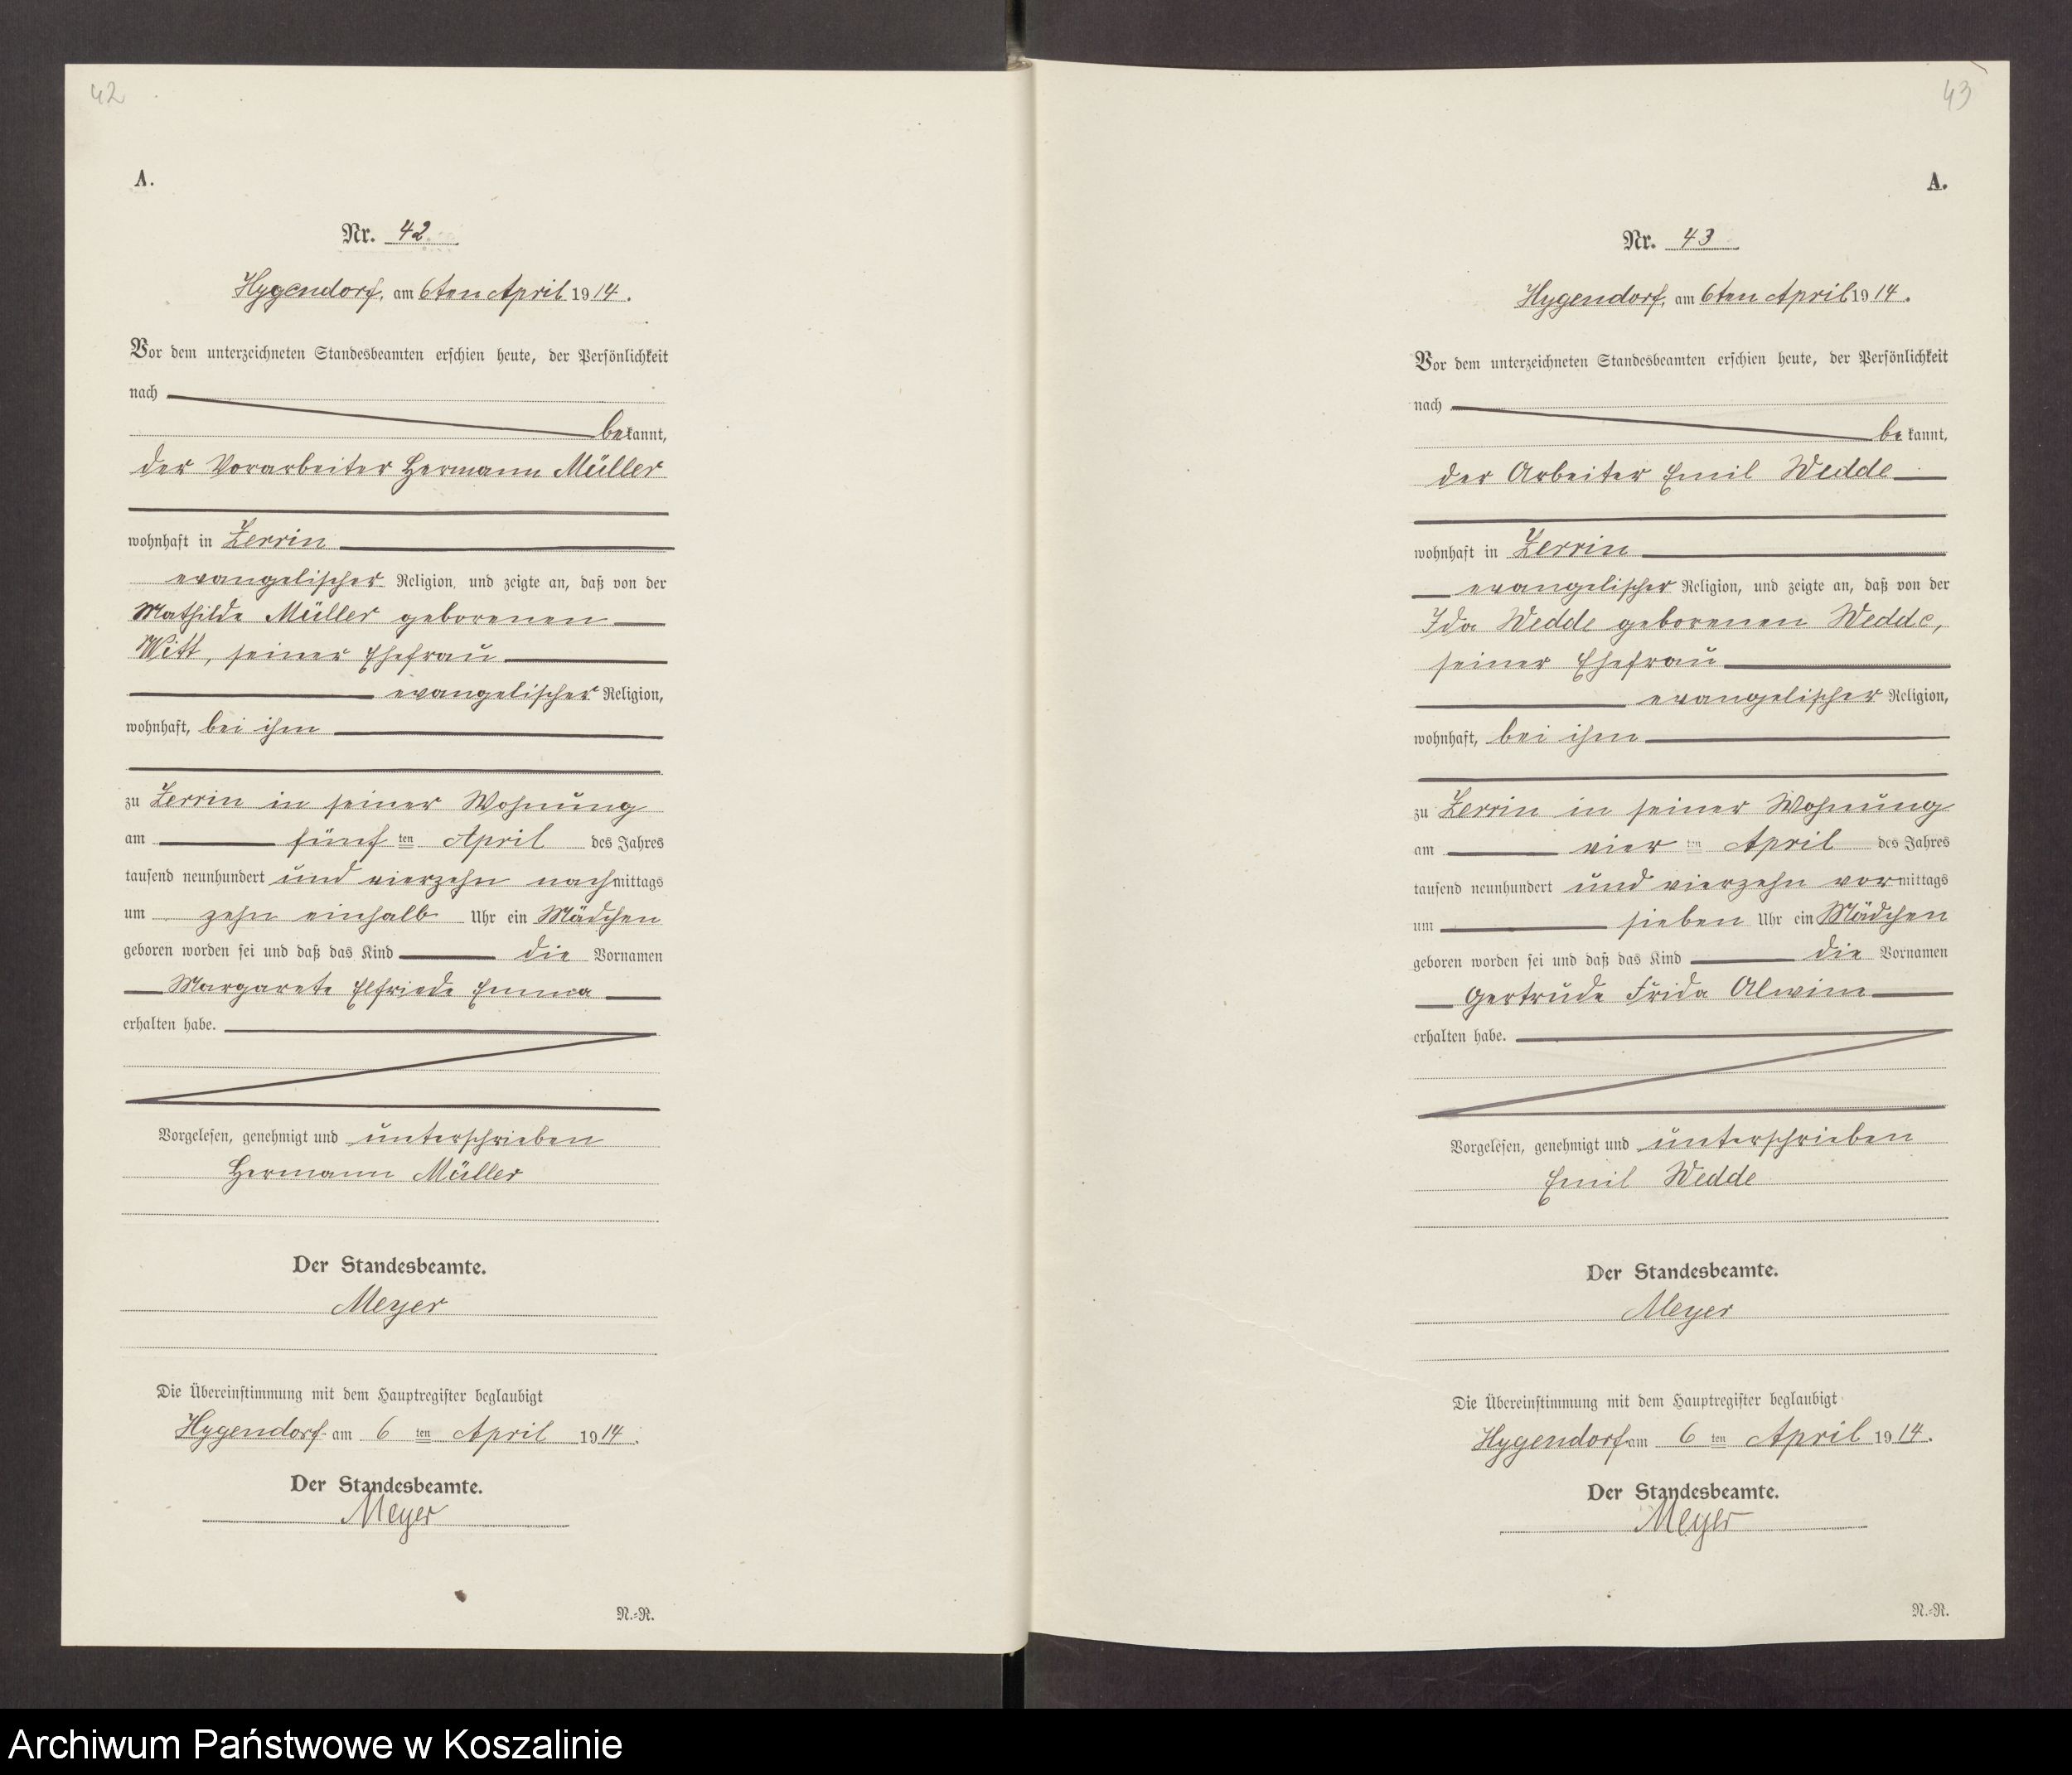 42
A.
Nr. 42
Hygendorf, am 6ten April 1914.
Vor dem unterzeichneten Standesbeamten erschien heute, der Persönlichkeit
nach
bekannt,
der Vorarbeiter Hermann Müller
wohnhaft in Zerrin
evangelischer Religion, und zeigte an, daß von der
Mathilde Müller geborenen
Witt, seiner Ehefrau
evangelischer Religion,
wohnhaft, bei ihm
zu Zerrin in seiner Wohnung
am fünf ten April des Jahres
tausend neunhundert und vierzehn nachmittags
um zehn einhalb Uhr ein Mädchen
geboren worden sei und daß das Kind die Vornamen
Margarete Elfriede Emma
erhalten habe.
Vorgelesen, genehmigt und unterschrieben
Hermann Müller
Der Standesbeamte.
Meyer
Die Übereinstimmung mit dem Hauptregister beglaubigt
Hygendorf am 6 ten April 1914.
Der Standesbeamte.
Meyer
N.-R.
43
A.
Nr. 43
Hygendorf, am 6ten April 1914.
Vor dem unterzeichneten Standesbeamten erschien heute, der Persönlichkeit
nach
bekannt,
der Arbeiter Emil Wedde
wohnhaft in Zerrin
evangelischer Religion, und zeigte an, daß von der
Ida Wedde geborenen Wedde,
seiner Ehefrau
evangelischer Religion,
wohnhaft, bei ihm
zu Zerrin in seiner Wohnung
am vier ten April des Jahres
tausend neunhundert und vierzehn vormittags
um sieben Uhr ein Mädchen
geboren worden sei und daß das Kind die Vornamen
Gertrude Frida Alwine
erhalten habe.
Vorgelesen, genehmigt und unterschrieben
Emil Wedde
Der Standesbeamte.
Meyer
Die Übereinstimmung mit dem Hauptregister beglaubigt
Hygendorf am 6 ten April 1914.
Der Standesbeamte.
Meyer
N.-R.
Archiwum Państwowe w Koszalinie